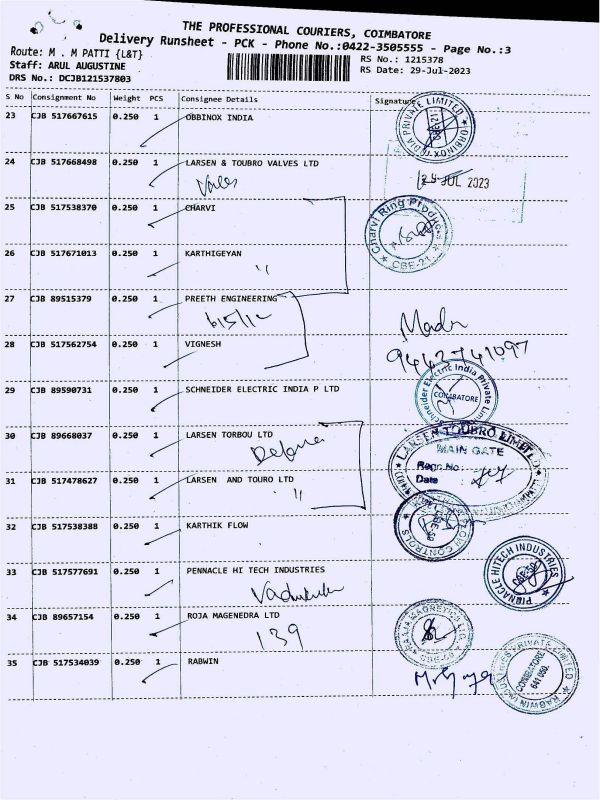 THE PROFESSIONAL COURIERS, COIMBATORE
Delivery Runsheet - PCK - Phone No.:0422-3505555 - Page No.:3
Route: M . M PATTI {L&T}
RS No.: 1215378
Staff: ARUL AUGUSTINE
RS Date: 29-Jul-2023
DRS No.: DCJB121537803
S No Consignment No Weight PCS Consignee Details Signature
23 CJB 517667615 0.250 1 OBBINOX INDIA
24 CJB 517668498 0.250 1 LARSEN & TOUBRO VALVES LTD
JUL 2023
25 CJB 517538370 0.250 1 CHARVI
Charvi Ring
CBE-21
26 CJB 517671013 0.250 1 KARTHIGEYAN
27 CJB 89515379 0.250 1 PREETH ENGINEERING
28 CJB 517562754 0.250 1 VIGNESH
9443741097
29 CJB 89590731 0.250 1 SCHNEIDER ELECTRIC INDIA P LTD
Schneider Electric India Private Limited
COIMBATORE
30 CJB 89668037 0.250 1 LARSEN TORBOU LTD
LARSEN TOUBRO LIMITED
MAIN GATE
Regn.No
Date
31 CJB 517478627 0.250 1 LARSEN AND TOURO LTD
32 CJB 517538388 0.250 1 KARTHIK FLOW
FLOW CONTROLS
33 CJB 517577691 0.250 1 PENNACLE HI TECH INDUSTRIES
PINNACLE HITECH INDUSTRIES
34 CJB 89657154 0.250 1 ROJA MAGENEDRA LTD
139
35 CJB 517534039 0.250 1 RABWIN
RABWIN INDUSTRIES PRIVATE LIMITED
COIMBATORE